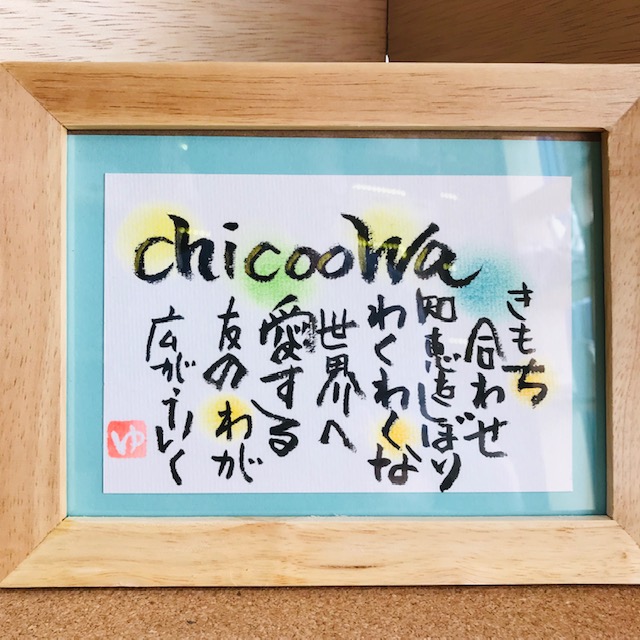 chicoowa
きもち
合わせ
知恵をしぼり
わくわくな
世界へ
愛する
友のわが
広がりいく
ゆ